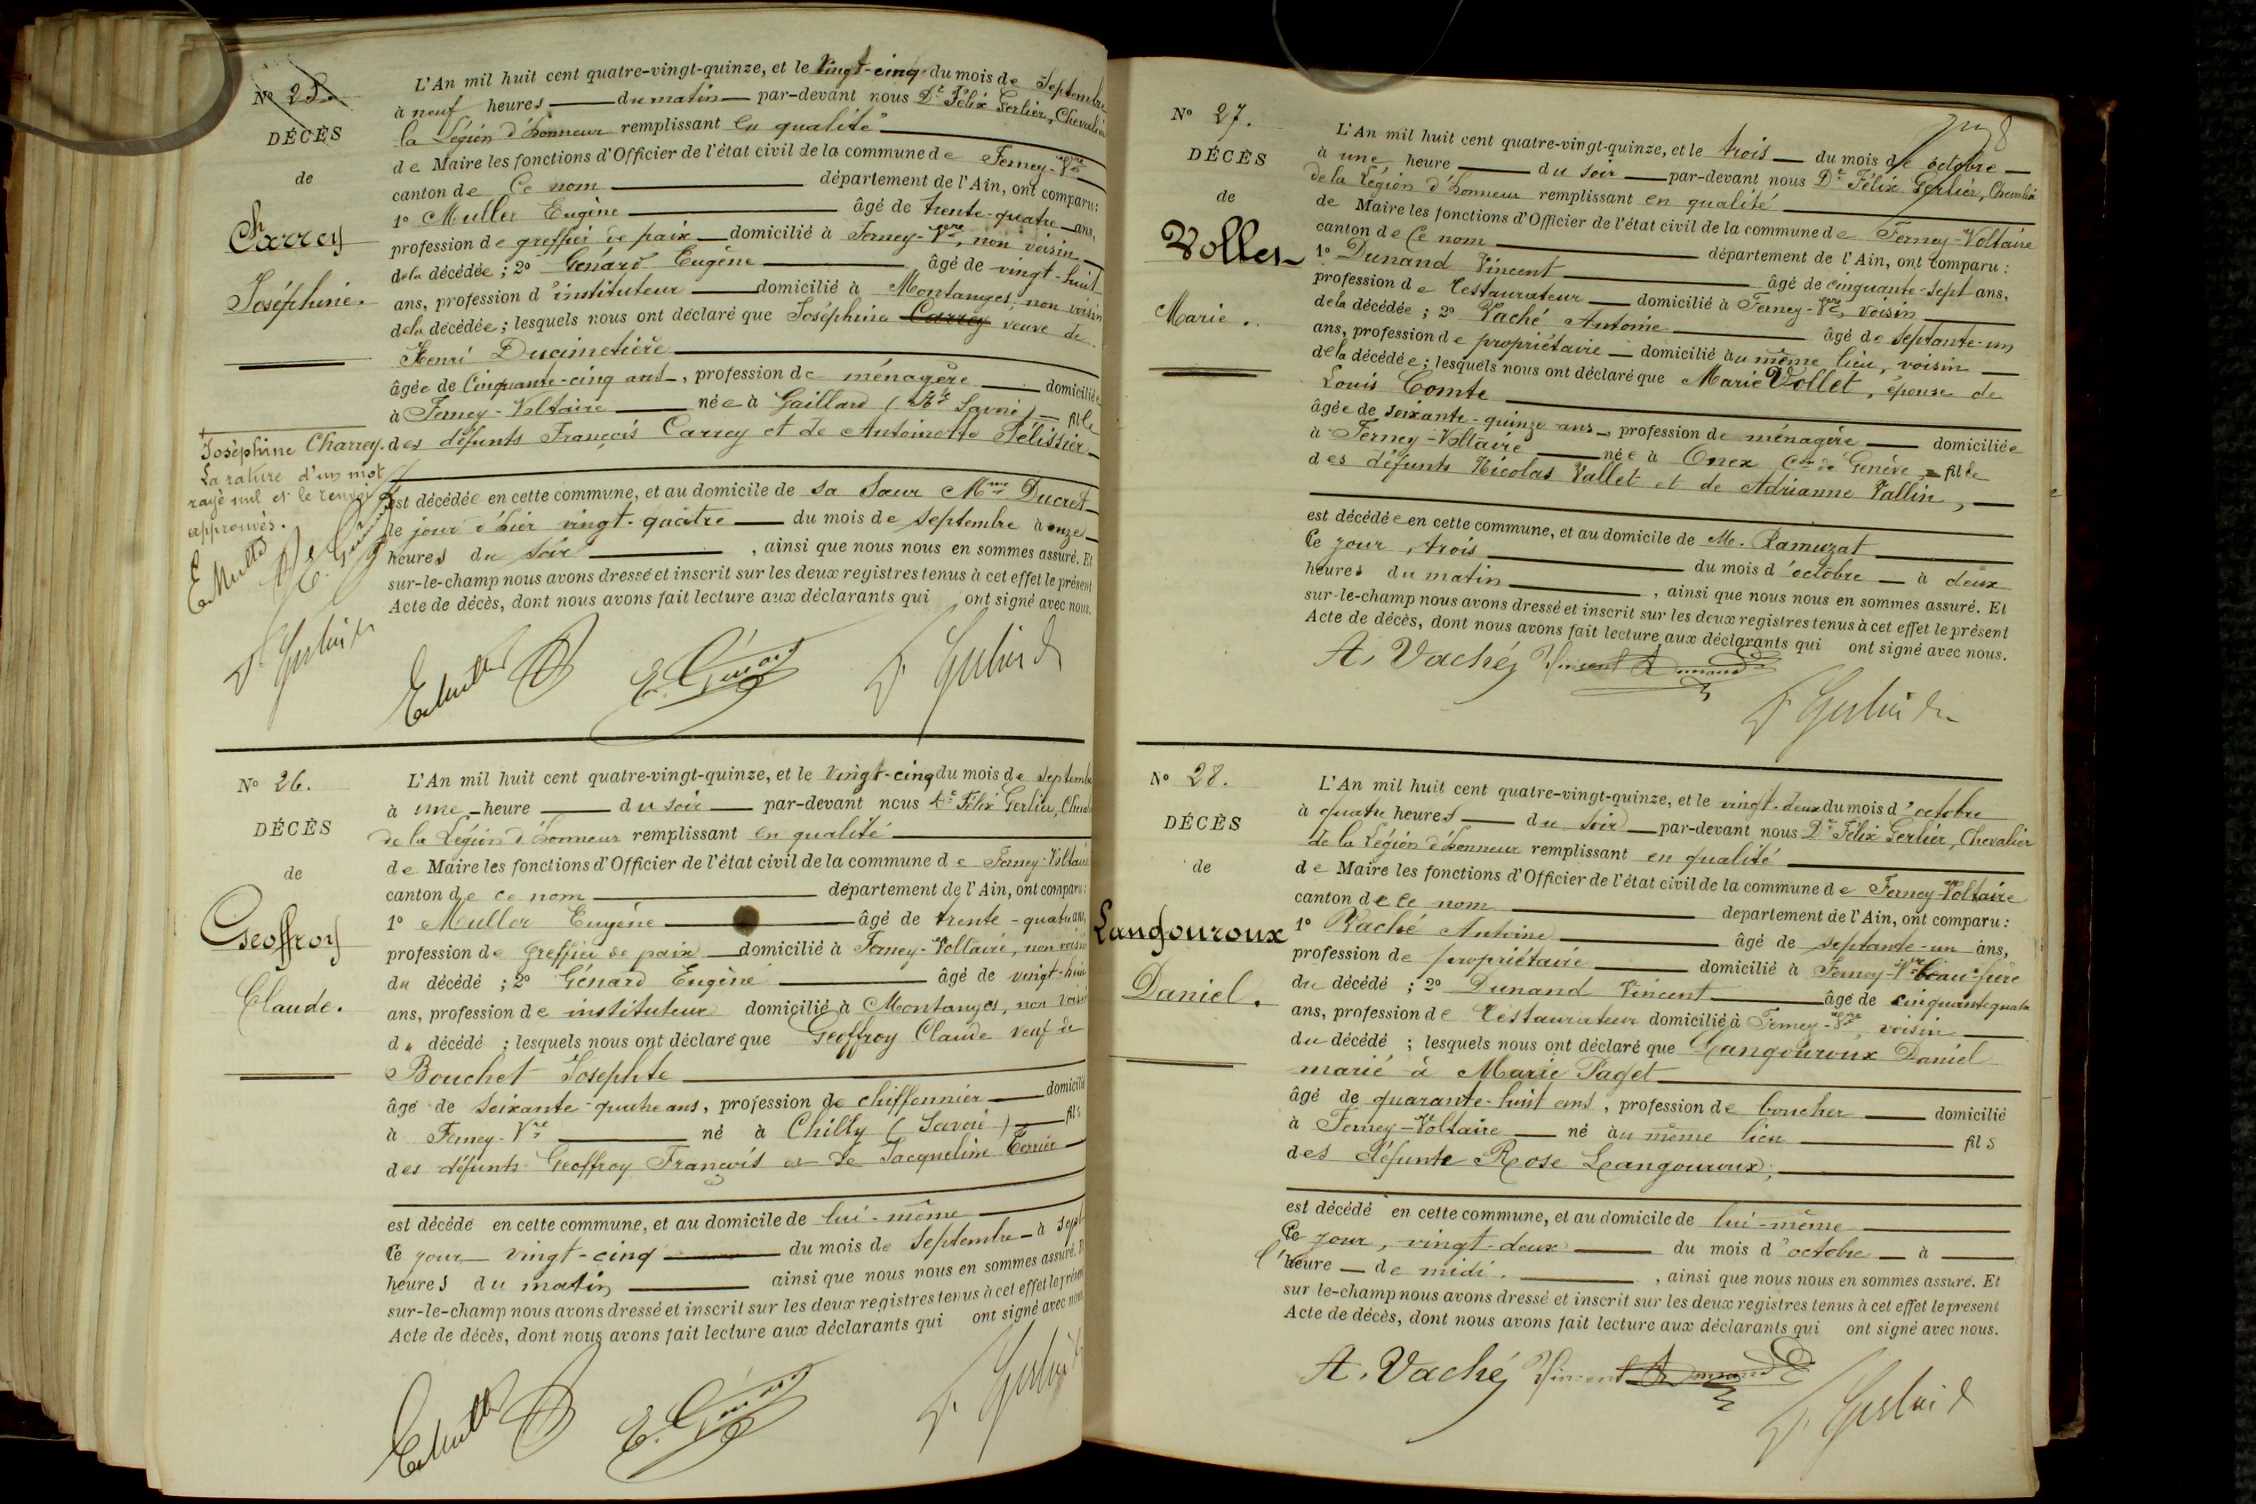 Nº 25.
DÉCÈS
de
Charrey
Joséphine.
L'An mil huit cent quatre-vingt-quinze, et le vingt-cinq du mois de Septembre
à neuf heures du matin par-devant nous Dr Félix Gerlier, Chevalier
la Légion d'honneur remplissant en qualité
de Maire les fonctions d'Officier de l'état civil de la commune de Ferney-Vre
canton de Ce nom département de l'Ain, ont comparu:
1º Muller Eugène âgé de trente-quatre ans,
profession de greffier de paix domicilié à Ferney-Vre, non voisin
de la décédée; 2º Génard Eugène âgé de vingt-huit
ans, profession d'instituteur domicilié à Montanges, non voisin
de la décédée; lesquels nous ont déclaré que Joséphine Carrey veuve de
Henri Ducimetière
âgée de Cinquante-cinq ans, profession de ménagère domiciliée
à Ferney-Voltaire née à Gaillard (Hte Savoie) fille
des défunts François Carrey et de Antoinette Pélissier
est décédée en cette commune, et au domicile de sa Sœur Mme Ducret
le jour d'hier vingt-quatre du mois de septembre à onze
heures du soir, ainsi que nous nous en sommes assuré. Et
sur-le-champ nous avons dressé et inscrit sur les deux registres tenus à cet effet le présent
Acte de décès, dont nous avons fait lecture aux déclarants qui ont signé avec nous.
Joséphine Charrey.
La rature d'un mot
rayé nul et le renvoi
approuvés.
EMuller E. Génard
Dr Gerlier
EMuller E. Génard Dr Gerlier
Nº 26.
DÉCÈS
de
Geoffroy
Claude.
L'An mil huit cent quatre-vingt-quinze, et le vingt-cinq du mois de septembre
à une heure du soir par-devant nous Dr Félix Gerlier, Cheval
de la Légion d'honneur remplissant en qualité
de Maire les fonctions d'Officier de l'état civil de la commune de Ferney-Voltaire
canton de ce nom département de l'Ain, ont comparu:
1º Muller Eugène âgé de trente-quatre ans,
profession de greffier de paix domicilié à Ferney-Voltaire, non voisin
du décédé; 2º Génard Eugène âgé de vingt-huit
ans, profession de instituteur domicilié à Montanges, non voisin
du décédé; lesquels nous ont déclaré que Geoffroy Claude veuf de
Bouchet Josephte
âgé de soixante-quatre ans, profession de chiffonnier domicilié
à Ferney-Vre né à Chilly (Savoie) fils
des défunts Geoffroy François et de Jacqueline Terrier
est décédé en cette commune, et au domicile de lui-même
Ce jour vingt-cinq du mois de septembre à sept
heures du matin ainsi que nous nous en sommes assuré. Et
sur-le-champ nous avons dressé et inscrit sur les deux registres tenus à cet effet le présent
Acte de décès, dont nous avons fait lecture aux déclarants qui ont signé avec nous.
EMuller E. Génard Dr Gerlier
Nº 27.
DÉCÈS
de
Vollet
Marie.
L'An mil huit cent quatre-vingt-quinze, et le trois du mois de octobre
à une heure du soir par-devant nous Dr Félix Gerlier, Chevalier
de la Légion d'honneur remplissant en qualité
de Maire les fonctions d'Officier de l'état civil de la commune de Ferney-Voltaire
canton de Ce nom département de l'Ain, ont comparu:
1º Dunand Vincent âgé de cinquante-sept ans,
profession de restaurateur domicilié à Ferney-Vre, voisin
de la décédée; 2º Vaché Antoine âgé de septante-un
ans, profession de propriétaire domicilié au même lieu, voisin
de la décédée; lesquels nous ont déclaré que Marie Vollet, épouse de
Louis Comte
âgée de soixante-quinze ans, profession de ménagère domiciliée
à Ferney-Voltaire née à Onex, Cton de Genève, fille
des défunts Nicolas Vallet et de Adrianne Vallin,
est décédée en cette commune, et au domicile de M. Ramuzat
Ce jour, trois du mois d'octobre à deux
heures du matin, ainsi que nous nous en sommes assuré. Et
sur-le-champ nous avons dressé et inscrit sur les deux registres tenus à cet effet le présent
Acte de décès, dont nous avons fait lecture aux déclarants qui ont signé avec nous.
A. Vaché Vincent Dunand
Dr Gerlier
Nº 28.
DÉCÈS
de
Langouroux
Daniel.
L'An mil huit cent quatre-vingt-quinze, et le vingt-deux du mois d'octobre
à quatre heures du soir par-devant nous Dr Félix Gerlier, Chevalier
de la Légion d'honneur remplissant en qualité
de Maire les fonctions d'Officier de l'état civil de la commune de Ferney-Voltaire
canton de ce nom département de l'Ain, ont comparu:
1º Vaché Antoine âgé de septante-un ans,
profession de propriétaire domicilié à Ferney-Vre beau-père
du décédé; 2º Dunand Vincent âgé de cinquante quatre
ans, profession de restaurateur domicilié à Ferney-Vre, voisin
du décédé; lesquels nous ont déclaré que Langouroux Daniel
marié à Marie Paget
âgé de quarante-huit ans, profession de boucher domicilié
à Ferney-Voltaire né au même lieu fils
des défunte Rose Langouroux,
est décédé en cette commune, et au domicile de lui-même
Ce jour, vingt-deux du mois d'octobre à
l'heure de midi, ainsi que nous nous en sommes assuré. Et
sur le-champ nous avons dressé et inscrit sur les deux registres tenus à cet effet le présent
Acte de décès, dont nous avons fait lecture aux déclarants qui ont signé avec nous.
A. Vaché Vincent Dunand Dr Gerlier